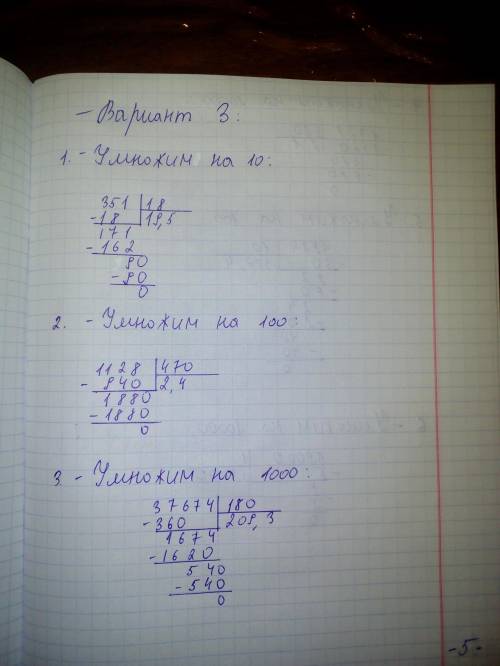 - Вариант 3:
1. - Умножим на 10:
351 | 18
-18 | 19,5
171
-162
90
-90
0
2. - Умножим на 100:
1128 | 470
-940 | 2,4
1880
-1880
0
3 - Умножим на 1000:
37674 | 180
-360 | 209,3
1674
-1620
540
-540
0
-5-